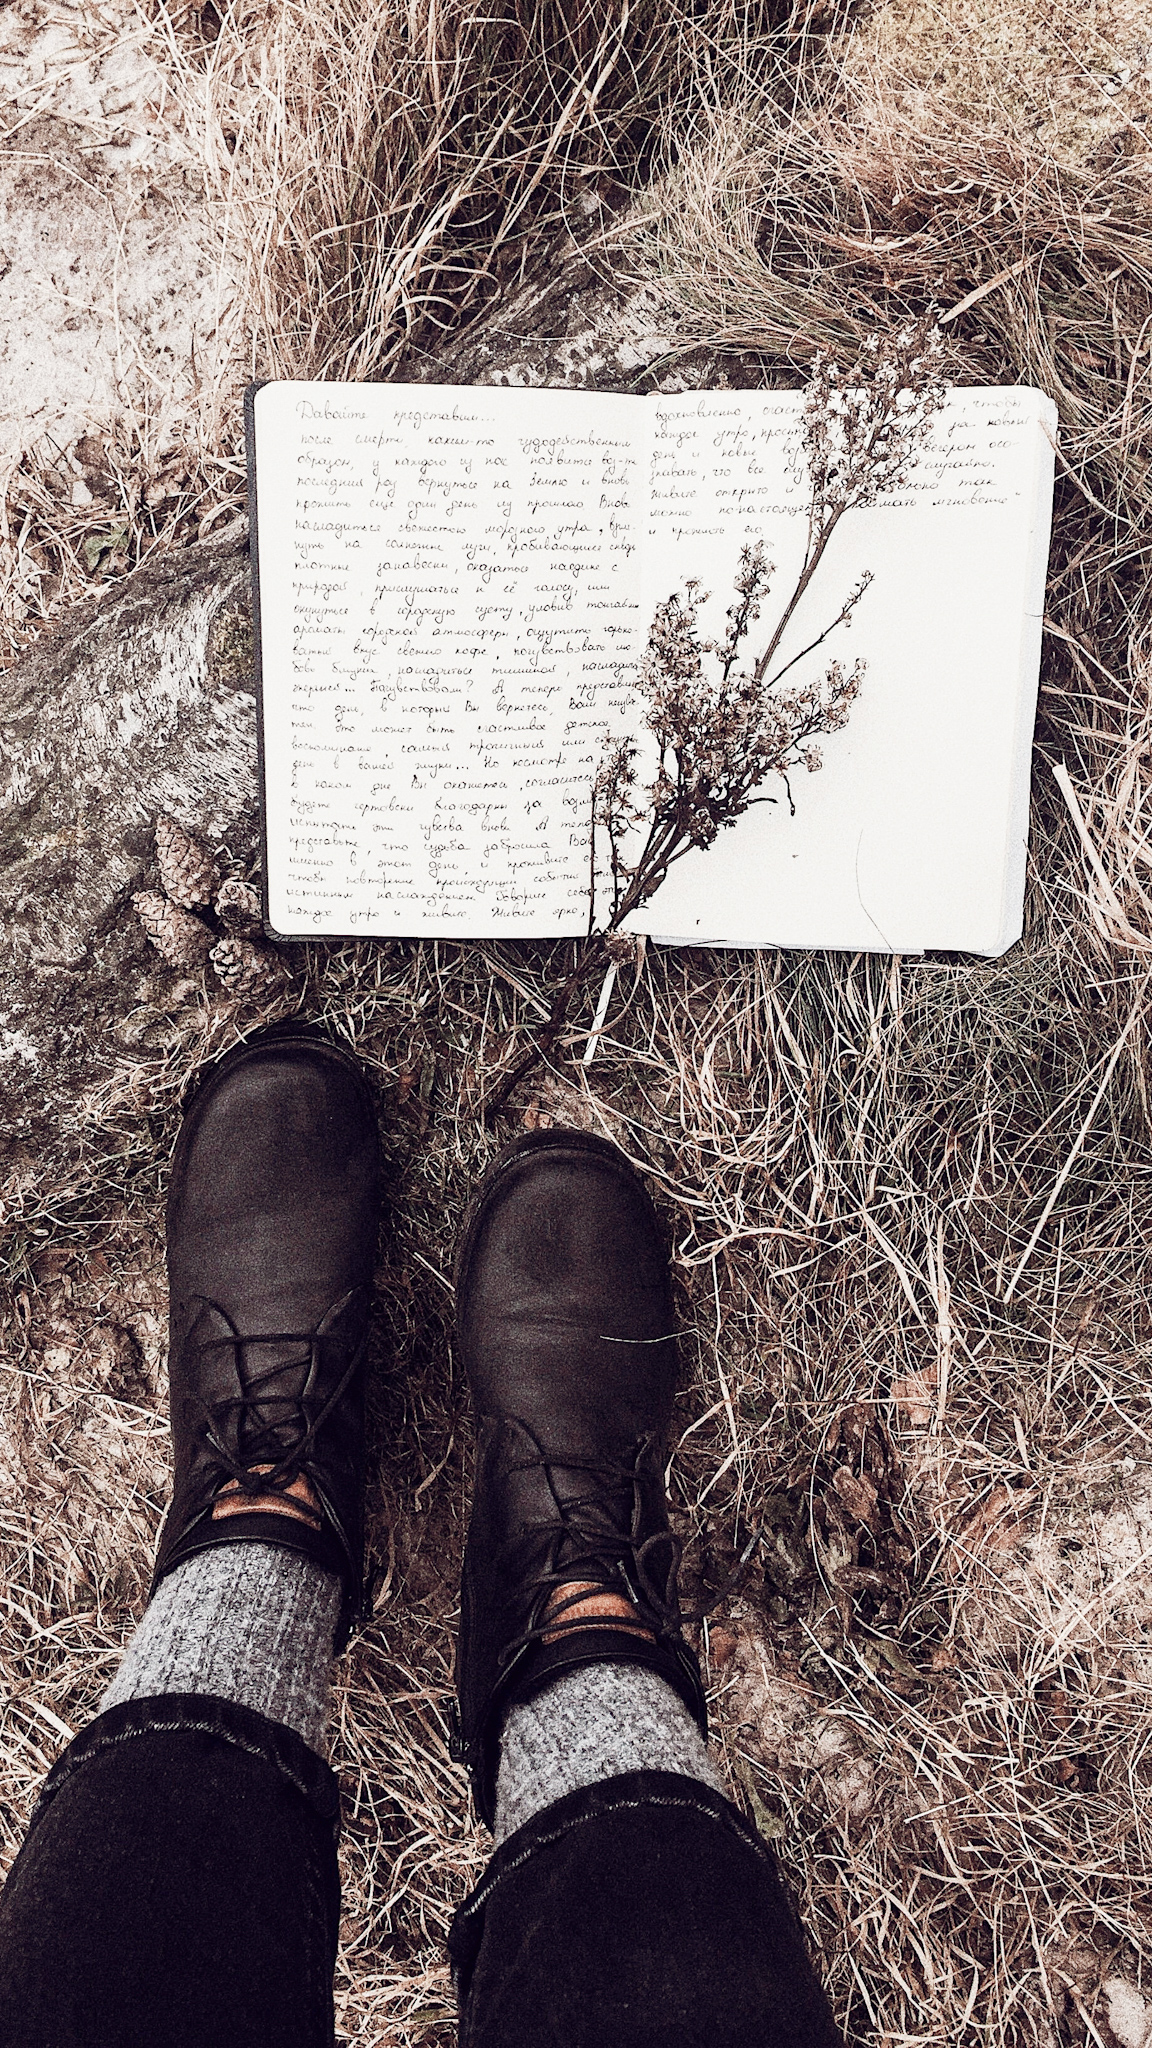 Давайте представим...
после смерти, каким-то чудодейственным
образом, у каждого из нас появится
последний раз вернуться на Землю и вновь
прожить еще один день из прошлого Вновь
насладиться свежестью морозного утра,
на солнечные лучи, пробивающиеся сквозь
плотные занавески, оказаться наедине с
природой, прислушаться к её голосу, или
окунуться в городскую суету, уловив
ароматы городской атмосферы, ощутить горько-
ватый вкус свежего кофе, почувствовать лю-
бовь близких, насладиться тишиной,
Почувствовали? А теперь представьте,
что день, в который Вы вернетесь, Вам неизвес-
тен, это может быть счастливое детское
воспоминание, самый трагичный или
день в вашей жизни... Но несмотря на
в каком дне Вы окажетесь, согласитесь,
будете чертовски благодарны за
испытать эти чувства вновь А теперь
представьте, что судьба забросила Вас
именно в этот день, и проживите его
чтобы повторение происходящих событий
истинным наслаждением Говорите себе это
каждое утро и живите. Живите ярко,
вдохновленно, чтобы
каждое утро, на новый
день и новые вечером осо-
знавать, что все случайно.
Живите открыто и только так
можно по-настоящему поймать мгновение"
и прожить его